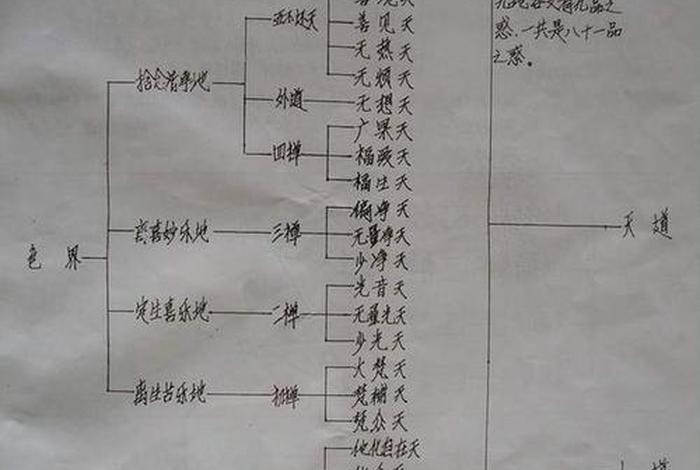 五不还天
善见天
无热天
无烦天
九地各又有九品之
惑、一共是八十一品
之惑。
捨念清净地
外道
无想天
四禅
广果天
福爱天
福生天
离喜妙乐地
三禅
徧净天
无量净天
少净天
天道
色界
定生喜乐地
二禅
光音天
无量光天
少光天
离生苦乐地
初禅
大梵天
梵辅天
梵众天
他化自在天
道